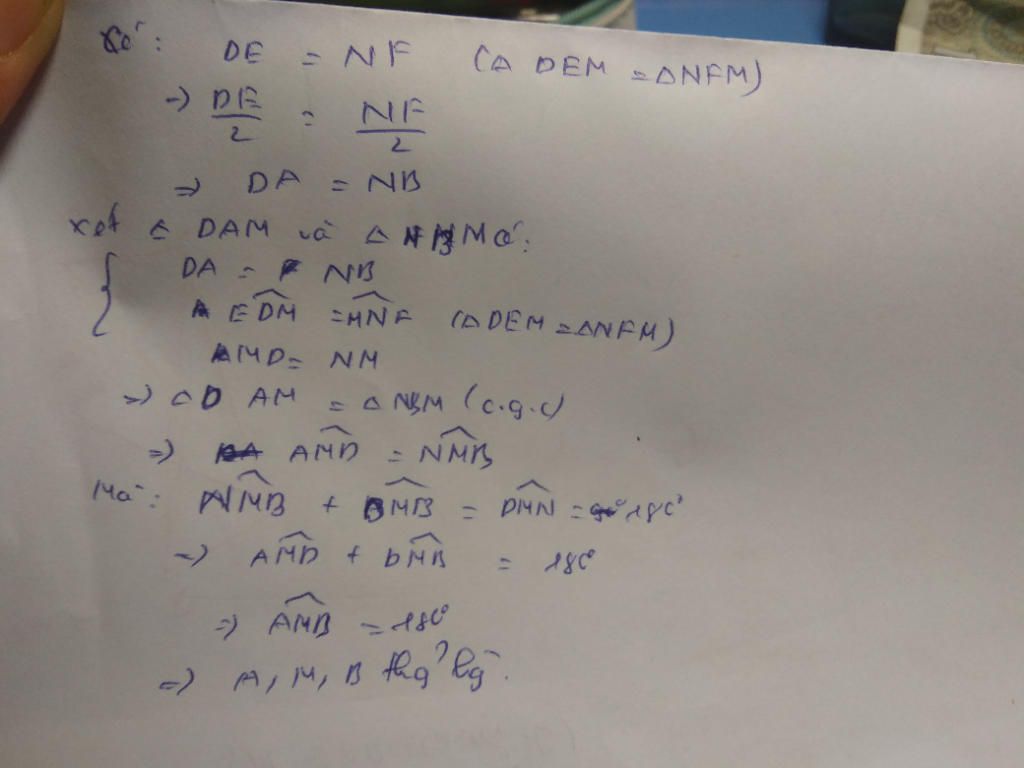 Có: DE = NF (Δ DEM = ΔNFM)
=> DE/2 = NF/2
=> DA = NB
Xét Δ DAM và Δ NBM có:
DA = NB
EDM = MNF (ΔDEM = ΔNFM)
MD = NM
=> ΔDAM = ΔNBM (c.g.c)
=> AMD = NMB
Mà: NMB + DMB = DMN = 180°
=> AMD + DMB = 180°
=> AMB = 180°
=> A, M, B thg? hg~.